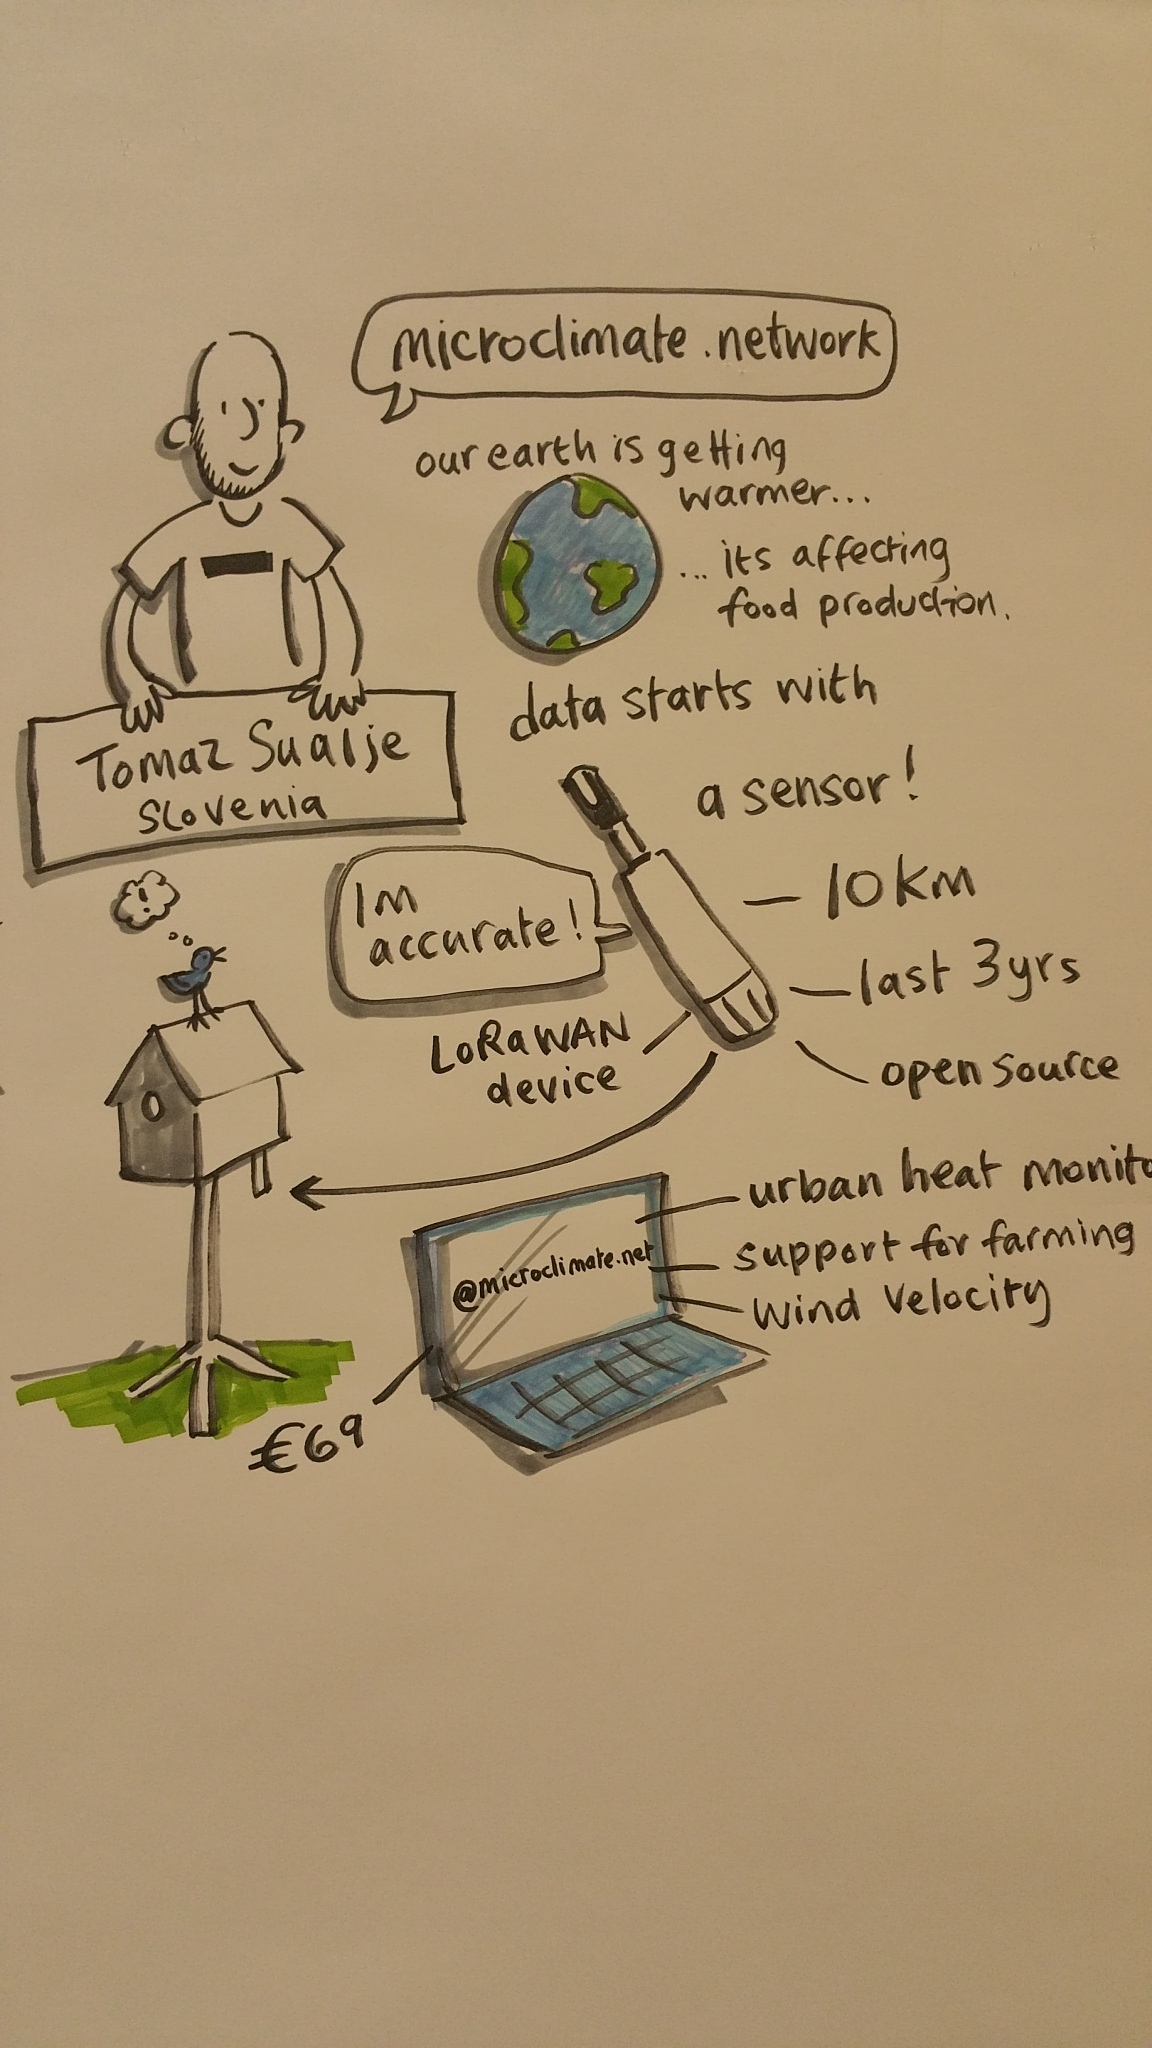 microclimate.network
our earth is getting
warmer...
... its affecting
food production.
data starts with
a sensor!
Tomaz Sualje
Slovenia
!
Im
accurate!
10km
last 3yrs
open source
LoRaWAN
device
urban heat monito
@microclimate.net
support for farming
wind velocity
€69